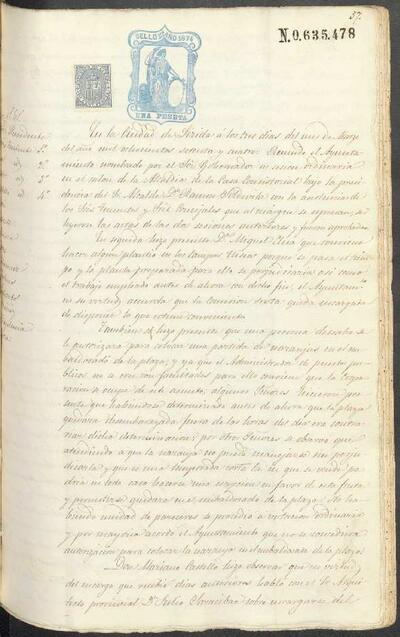 57.
N.0.635.478
SELLO 11º AÑO 1874
UNA PESETA
En la Ciudad de Lérida a los tres dias del mes de Marzo
del año mil ochocientos setenta y cuatro Reunido el Ayunta-
miento nombrado por el Sór Gobernador en sesion ordinaria
en el salon de la Alcaldia de la Casa Consistorial bajo la presi-
dencia del Sr Alcalde Dn Ramon con la asistencia de
los Sres Tenientes y Sres Concejales que al margen se espresan, se
leyeron las actas de las dos sesiones anteriores y fueron aprobadas
En seguida hizo presente Dn Miguel que convenia
hacer algun plantio en los Campos porque se pasa el tiem-
po y la planta preparada para ello se perjudicaria asi como
el trabajo empleado antes de ahora con dicho fin: el Ayuntam.
en su virtud acuerda que la Comision sexta quede encargada
de disponer lo que estime conveniente
Tambien se hizo presente que una persona deseaba se
le autorizara para colocar una partida de naranjas en el em-
baldosado de la plaza, y ya que el Administrador de puestos pu-
blicos no se cree con facultades para ello conviene que la Corpo-
racion se ocupe de este asunto; algunos Señores hicieron pre-
sente que habiendose determinado antes de ahora que la plaza
quedara desembarazada fuera de las horas del dia era contra-
riar dicha determinacion; por otros Señores se observó que
atendiendo a que la naranja no puede manejarse sin perju-
dicarla y que es una temporada corta la en que se vende po-
dria en todo caso hacerse una escepcion en favor de esta fruta
y permitirse quedara en el embaldosado de la plaza. No ha-
biendo unidad de pareceres se procedió a votacion ordinaria
y por mayoria acordó el Ayuntamiento que no se concediera
autorizacion para colocar la naranja en el embaldosado de la plaza
Don Mariano Castells hizo observar que en virtud
del encargo que recibió dias anteriores habló con el Sr Arqui-
tecto provincial Dn Julio sobre encargarse del